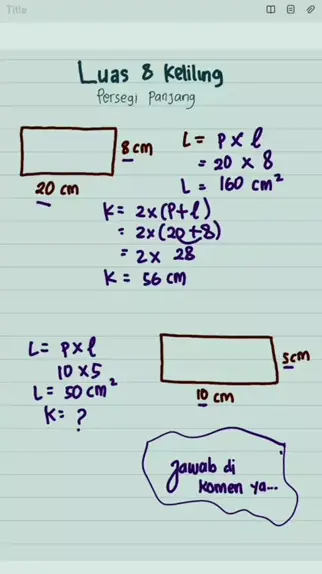 Title
Luas & Keliling
Persegi Panjang
8 cm
20 cm
L = P x l
= 20 x 8
L = 160 cm²
K = 2x(P+l)
= 2x(20+8)
= 2x 28
K = 56 cm
L = P x l
10 x 5
L = 50 cm²
K = ?
5cm
10 cm
Jawab di
komen ya...